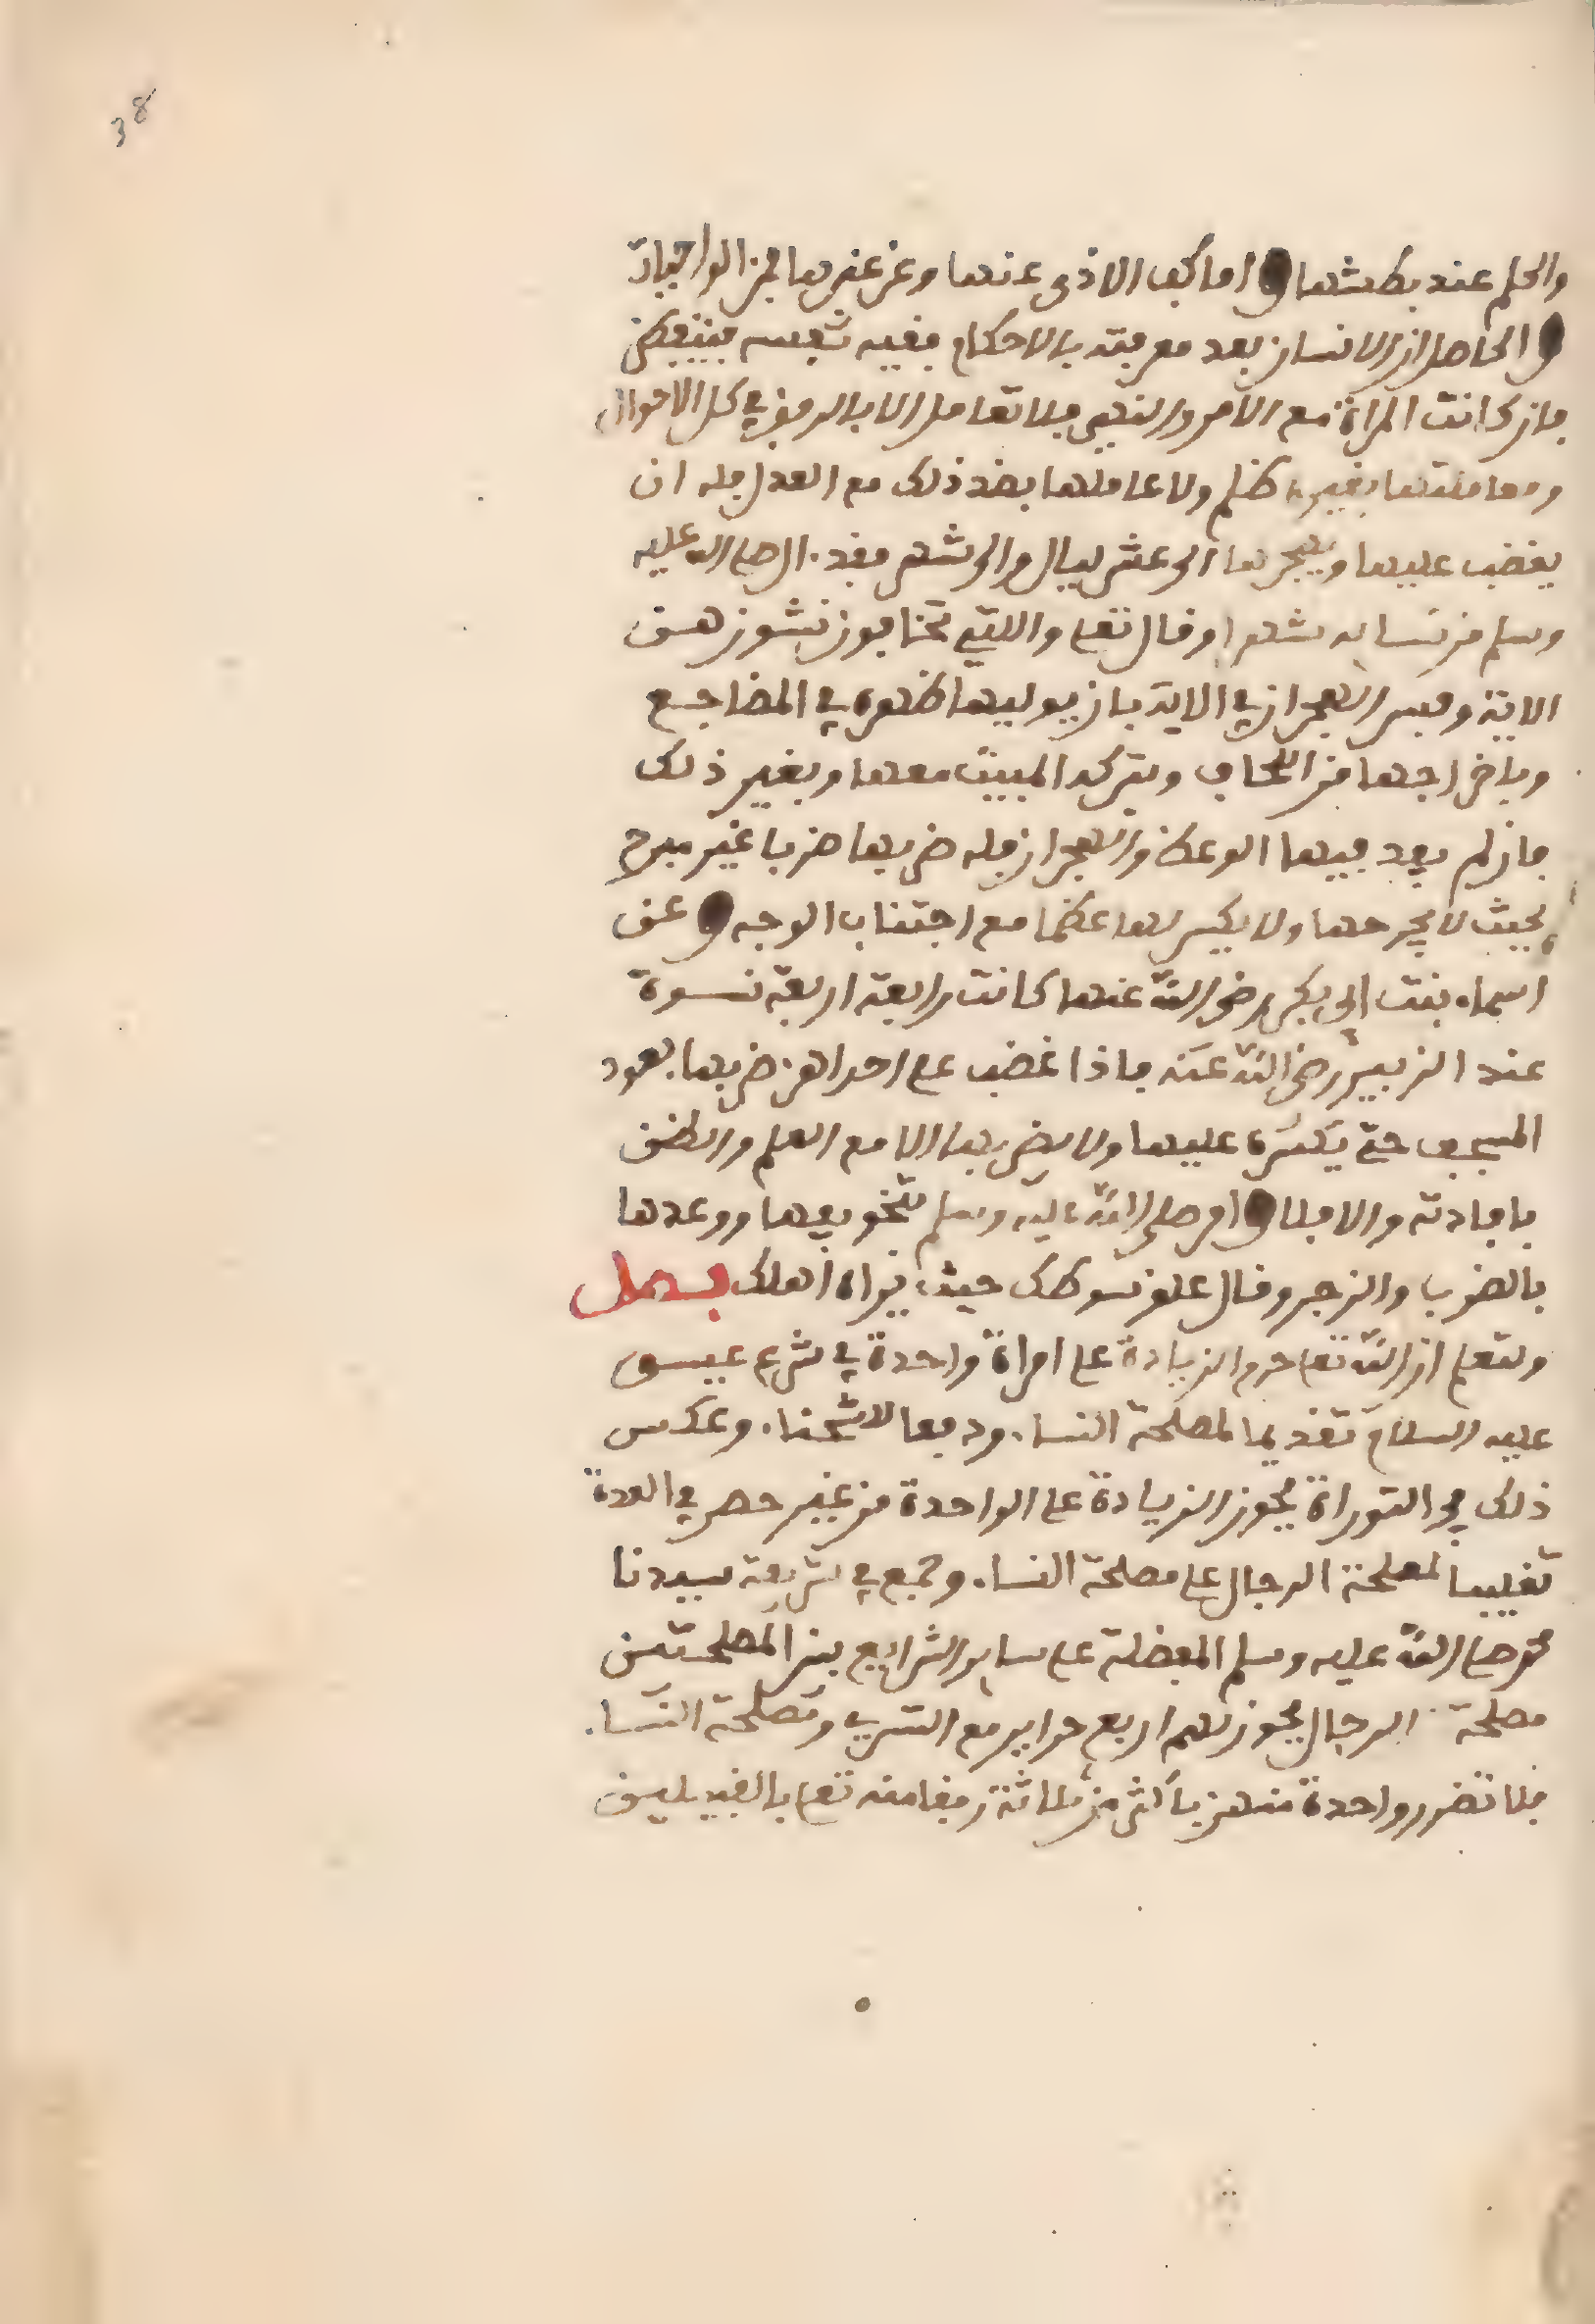 38
والحلم عند بطشها واما كف الاذى عنها وعن غيرها فمن الواجبات
والحاصل ان الانسان بعد معرفته بالاحكام فقيه نفسه
فان كانت المراة مع الامر والنهي فلا تعامل الا بالرفق في كل الاحوال
ومعاملتها بغيره ظلم ولا عاملها بضد ذلك مع العدل فله ان
يغضب عليها ويهجرها الى عشر ليال والى شهر فقد صلى الله عليه
وسلم من نسايه شهرا وقال تعلى والتي تخافون نشوزهن
الاية وفسر الهجران في الاية بان يوليها ظهره في المضاجع
وباخراجها من اللحاف وبتركه المبيت معها وبغير ذلك
فان لم يفد فيها الوعظ والهجران فله ضربها ضربا غير مبرح
بحيث لا يجرحها ولا يكسر لها عظما مع اجتناب الوجه وعن
اسماء بنت ابى بكر رضي الله عنها كانت رابعة اربعة نسوة
عند الزبير رضي الله عنه فاذا غضب على احداهن ضربها بعود
المشجب حتى يكسره عليها ولا يضربها الا مع العلم والظن
بافادته والا فلا وامر صلى الله عليه وسلم بتخويفها ووعدها
بالضرب والزجر وقال علق سوطك حيث يراه اهلك فصل
ولتعلم ان الله تعلى حرم الزيادة على امراة واحدة في شرع عيسى
عليه السلام تقديما لمصلحة النسا ودفعا للشحنا وعكس
ذلك في التوراة يجوز الزيادة على الواحدة من غير حصر في العدة
تغليبا لمصلحة الرجال على مصلحة النسا وجمع في شريعة سيدنا
محمد صلى الله عليه وسلم المفضلة على ساير الشرايع بين المصلحتين
مصلحة الرجال يجوز لهم اربع حراير مع التسري ومصلحة النسا
فلا تضرر واحدة منهن باكثر من ثلاثة